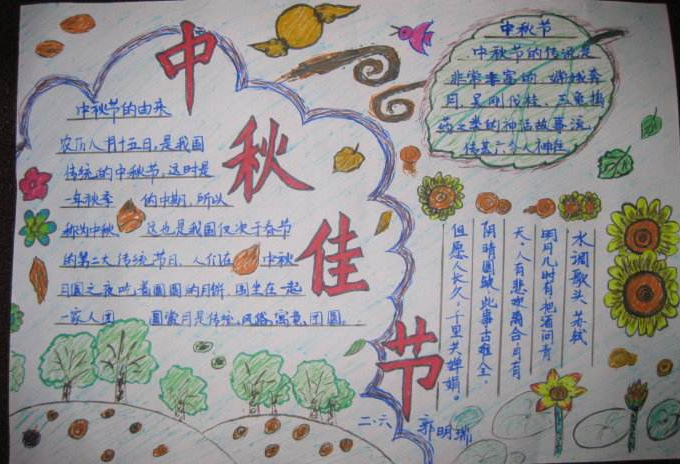 中
秋
佳
节
中秋节的由来
农历八月十五日,是我国
传统的中秋节,这时是
一年秋季 的中期,所以
称为中秋 这也是我国仅次于春节
的第二大传统节日,人们在 中秋
月圆之夜吃着圆圆的月饼,围坐在一起
一家人团 圆赏月是传统风俗,寓意团圆。
中秋节
中秋节的传说是
非常丰富的 嫦娥奔
月,吴刚伐桂,玉兔捣
药之类的神话故事流
传甚广
水调歌头 苏轼
明月几时有 把酒问青
天。人有悲欢离合,月有
阴晴圆缺,此事古难全,
但愿人长久,千里共婵娟。
二·六 郭明瑞